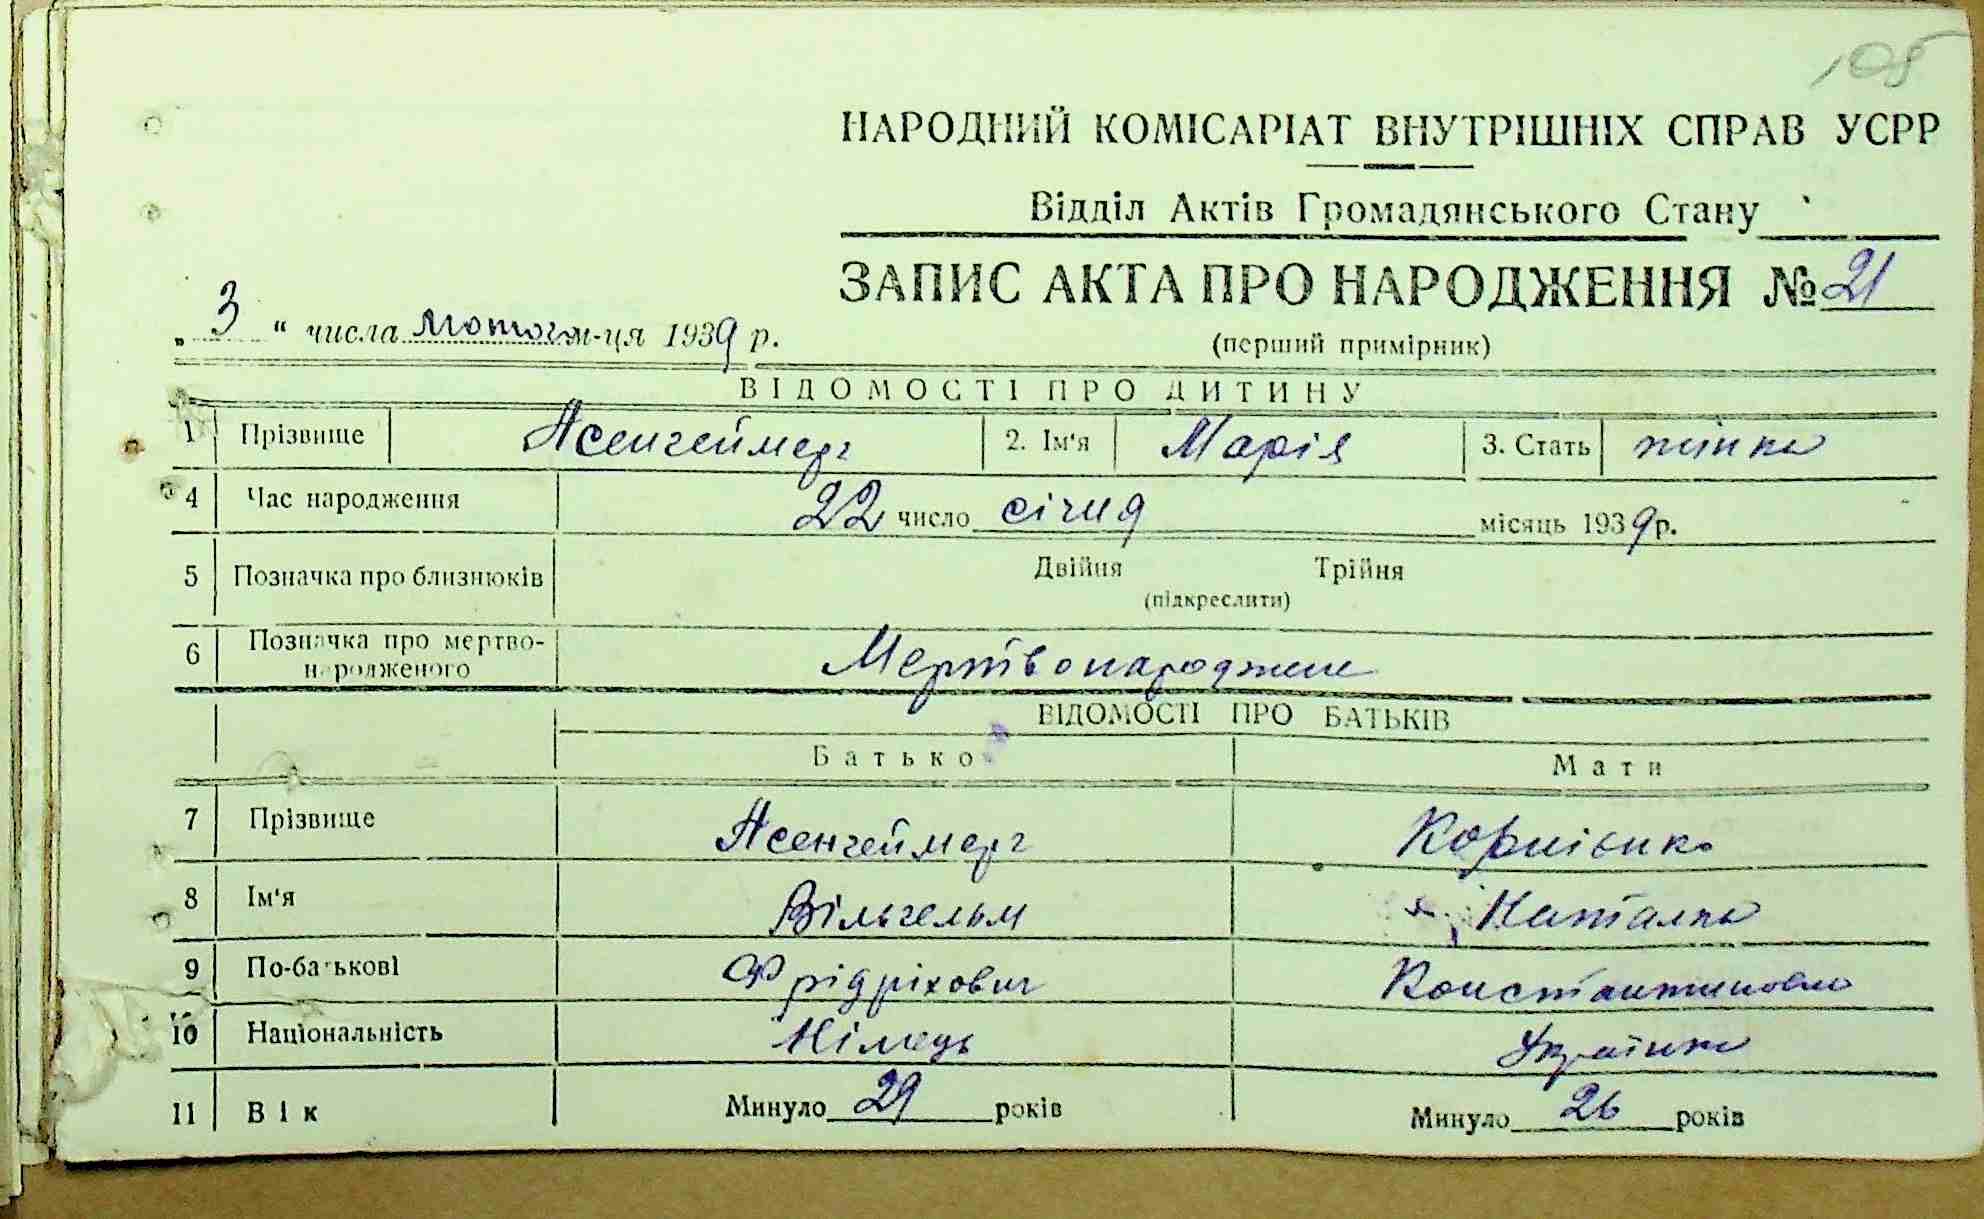 108
НАРОДНИЙ КОМІСАРІАТ ВНУТРІШНІХ СПРАВ УСРР
Відділ Актів Громадянського Стану
ЗАПИС АКТА ПРО НАРОДЖЕННЯ № 21
„ 3 “ числа лютого м-ця 1939 р.
(перший примірник)
ВІДОМОСТІ ПРО ДИТИНУ
1 Прізвище Асенгеймерг 2. Ім'я Марія 3. Стать жінка
4 Час народження 22 число січня місяць 1939 р.
5 Позначка про близнюків Двійня Трійня
(підкреслити)
6 Позначка про мертво-
народженого Мертвонароджене
ВІДОМОСТІ ПРО БАТЬКІВ
Батько Мати
7 Прізвище Асенгеймерг Корнієнко
8 Ім'я Вільгельм Наталка
9 По-батькові Фрідріхович Константиновна
10 Національність Німець Українка
11 Вік Минуло 29 років Минуло 26 років